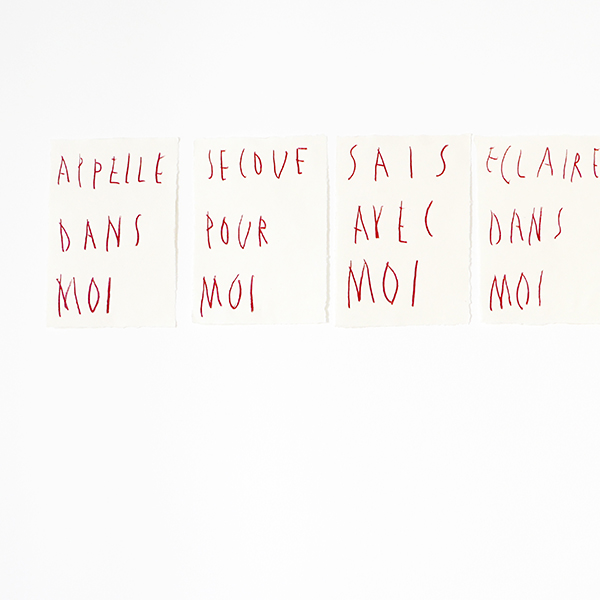 APPELLE
DANS
MOI
SECOUE
POUR
MOI
SAIS
AVEC
MOI
ECLAIRE
DANS
MOI